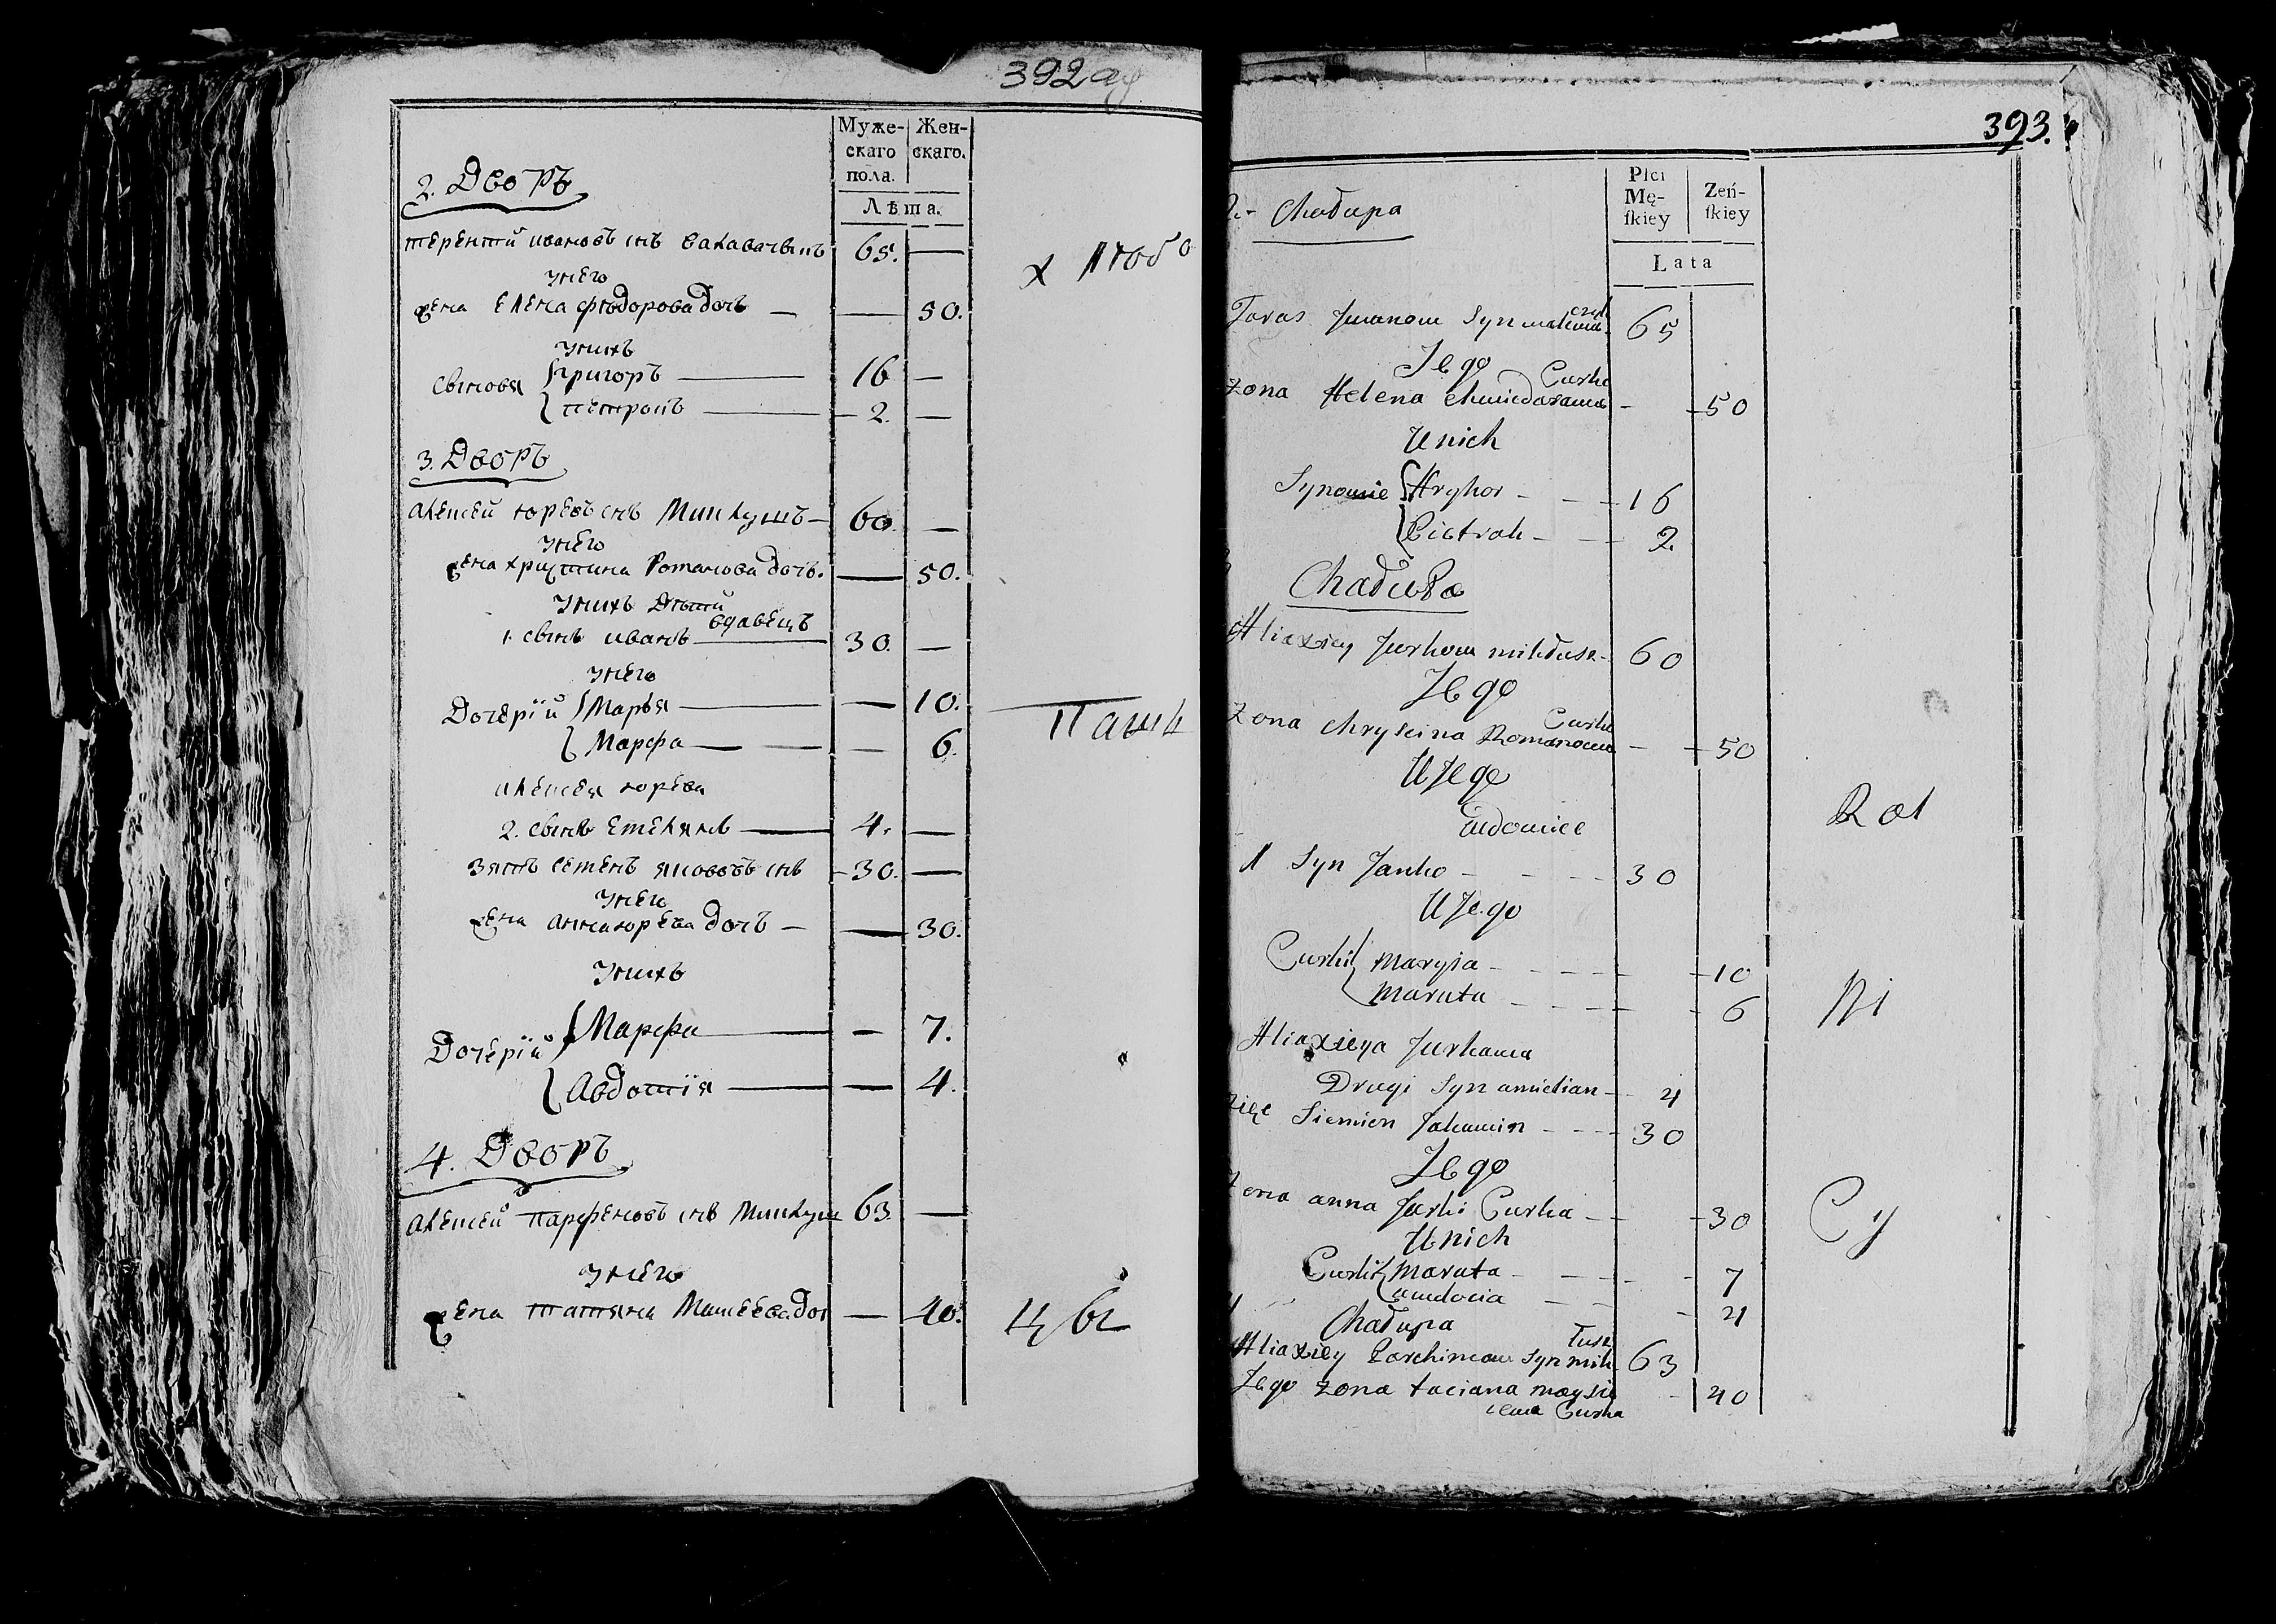 392 об
Муже-
скаго
пола.
Жен-
скаго.
Лѣта.
2. Дворъ
Терентй ивановъ снъ 65. —
унего
жена Елена фѣодорова дочь — — 50.
унихъ
сыновя { григоръ — 16 —
{ петрокъ — 2. —
3. Дворъ
алексей юревъ снъ Миклушъ — 60. —
унего
жена христина Романова дочь. — 50.
унихъ дѣти
вдавецъ
1. сынъ иванъ 30. —
унего
Дочерїй { Маръя — — 10.
{ Марфа — — 6.
алексея юрева
2. сынъ Емелянъ — 4. —
зять семенъ якововъ снъ - 30. —
унего
жена анна юрева дочь — — 30.
унихъ
Дочерїй { Марфа — — 7.
{ Авдотїя — — 4.
4. Дворъ
алексей парфеновъ снъ Миклуш 63. —
унего
жена татяна Матеева доч — 40.
х Любо
Пашк
Цы
393.
Płci
Mę-
ſkiey
Zeń-
ſkiey
Lata
2 - Chałupa
Taras Jwanow Syn 65
Jego
Curka
zona Helena Chwiedarawa - 50
U nich
Synowie { Hryhor - 16
{ Pietrok - 2.
Chałupa
Aliaxiey Jurkow mikłusz - 60
Jego
Curka
Zona Chryscina Romanowa - 50
U Jego
wdowiec
1 Syn Janko - 30
U Jego
Curki { Maryia - 10
{ Maruta - 6
Aliaxieya Jurkawa
Drugi Syn amielian - 4
zięc Siemien Jakawin - 30
Jego
zona anna Jurki Curka - 30
U nich
Curki { Maruta - 7
{ awdocia - 4
Chałupa
łusz
Aliaxiey Parchimow Syn mik 63
Jego zona taciana maysie - 40
iewa Curka
Rol
Ni
Cy